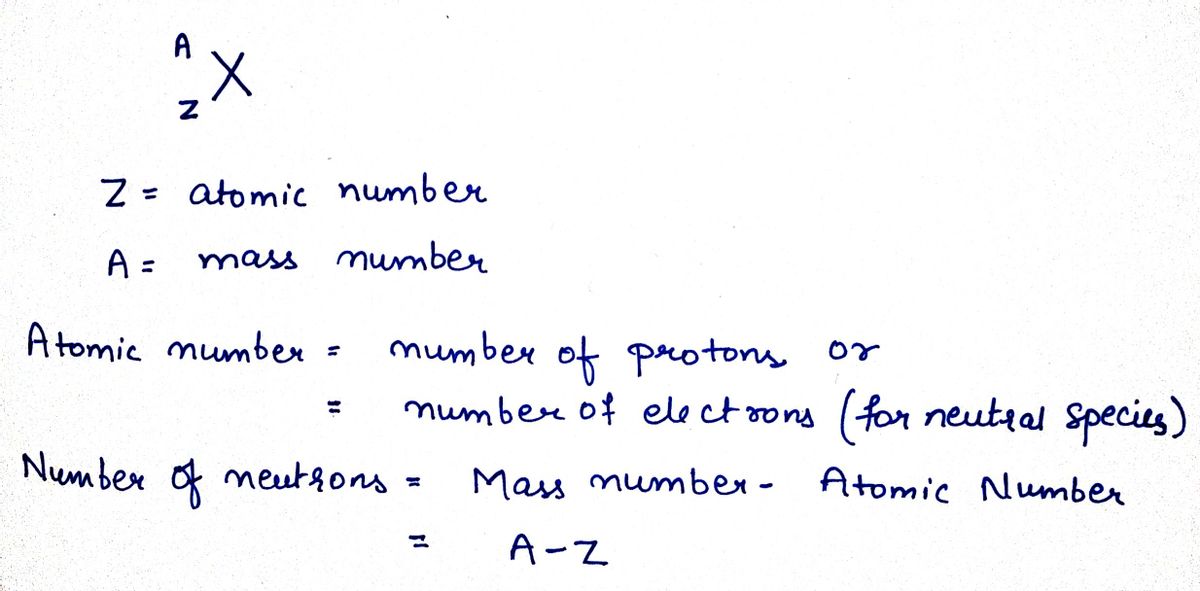 A
X
Z
Z = atomic number
A = mass number
Atomic number = number of protons or
= number of electrons (for neutral species)
Number of neutrons = Mass number - Atomic Number
= A-Z